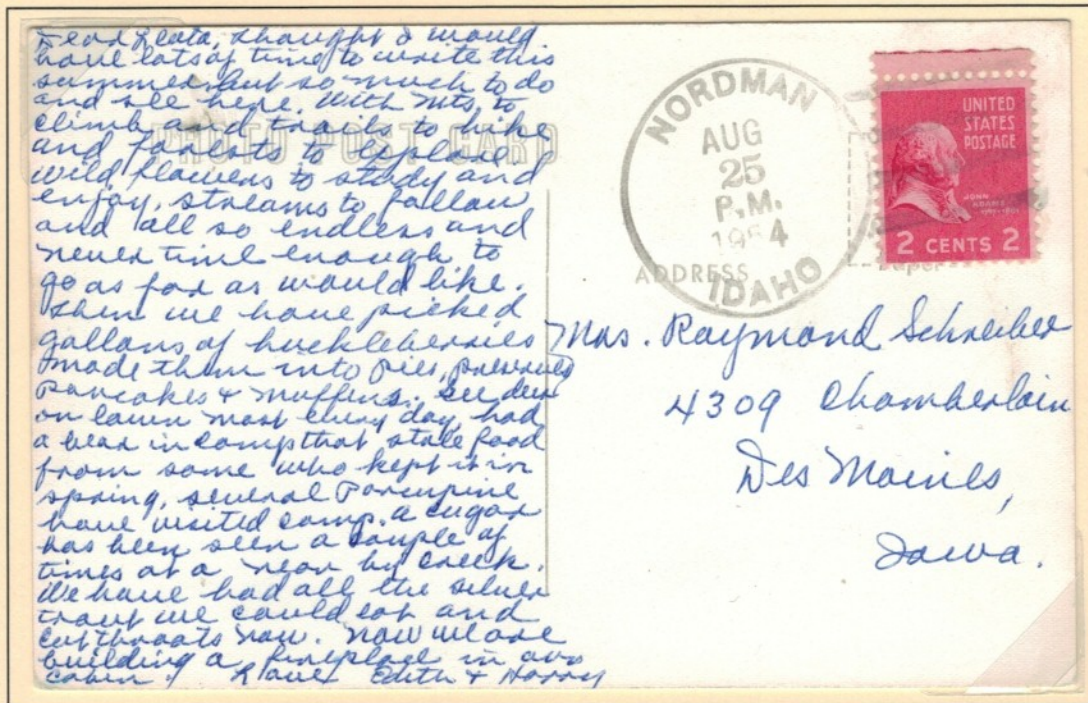 Dear Leata, thought I would
have lots of time to write this
summer but so much to do
and see here. With Mts. to
climb and trails to hike
and forests to explore,
wild flowers to study and
enjoy, streams to follow
and all so endless and
never time enough to
go as far as would like.
Then we have picked
gallons of huckleberries
made them into pies, preserves
pancakes & muffins. See deer
on lawn most every day, had
a bear in camp that stole food
from some who kept it in
spring, several Porcupine
have visited camp. a cugar
has been seen a couple of
times at a near by creek.
We have had all the silver
trout we could eat and
cutthroats now. Now we are
building a fireplace in our
cabin. Love Edith & Harry
PHOTO POST CARD
NORDMAN
AUG
25
P.M.
1954
IDAHO
ADDRESS
UNITED
STATES
POSTAGE
JOHN
ADAMS
2 CENTS 2
Mrs. Raymond Schreiber
4309 Chamberlain
Des Moines,
Iowa.